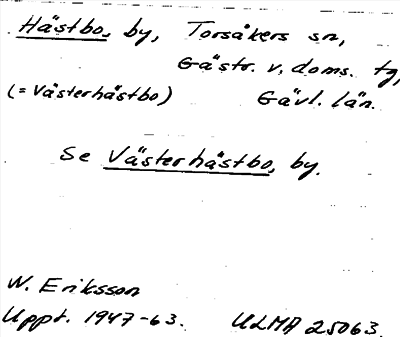 Hästbo, by, Torsåkers sn,
Gästr. v. doms. tg,
(= Västerhästbo) Gävl. län.
Se Västerhästbo, by.
W. Eriksson
Uppt. 1947-63. ULMA 25063.